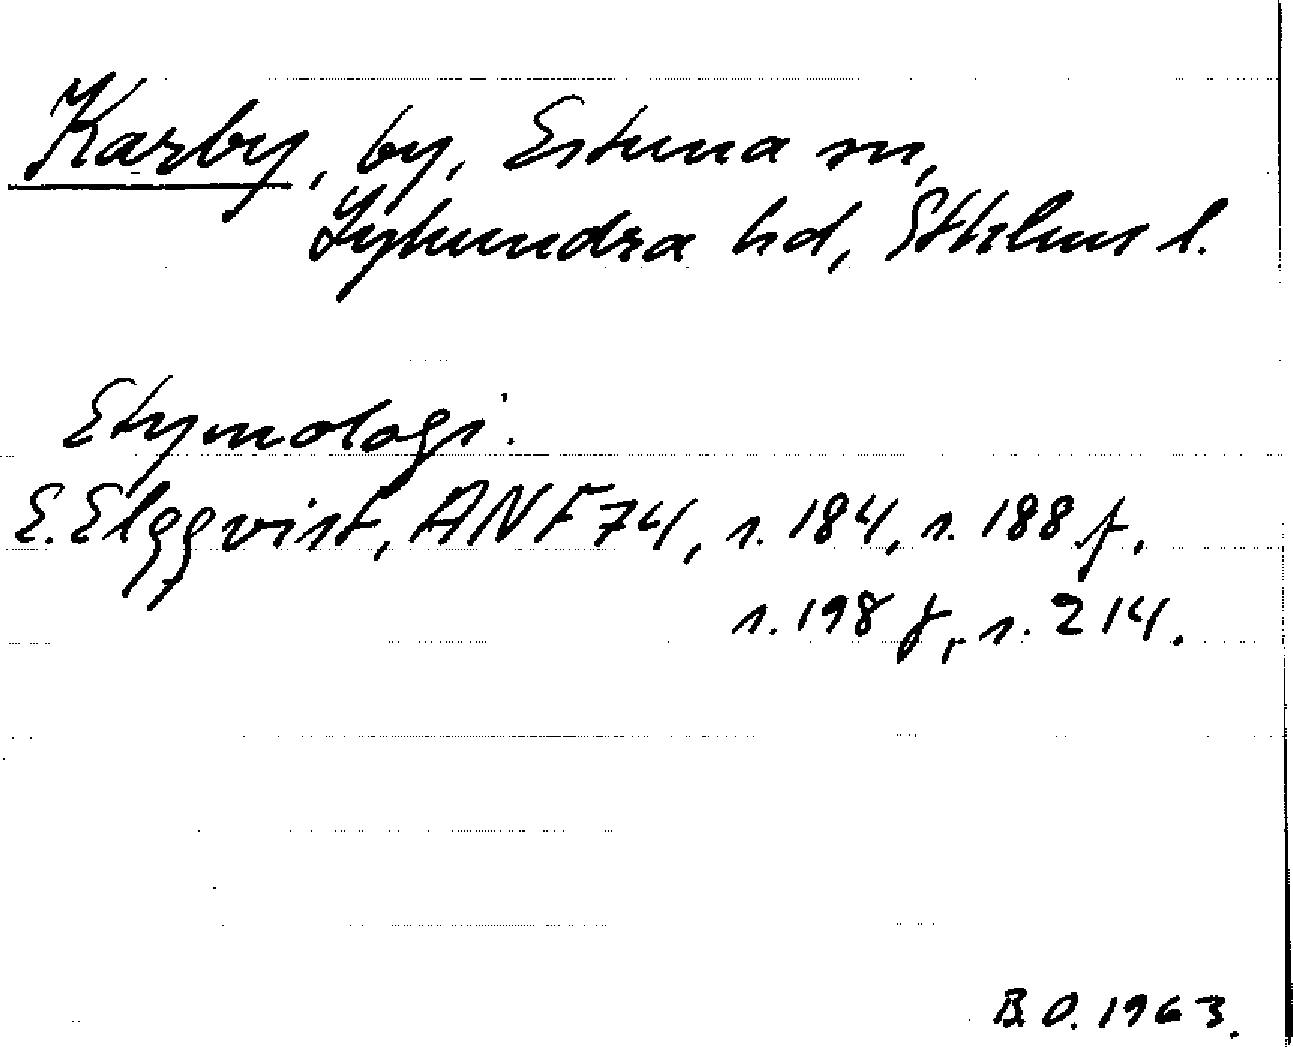 Karby, by, Estuna sn,
Lyhundra hd, Sthlms l.
Etymologi:
E. Elgqvist, ANF 74, s. 184, s. 188 f.
s. 198 f, s. 214.
B.O. 1963.